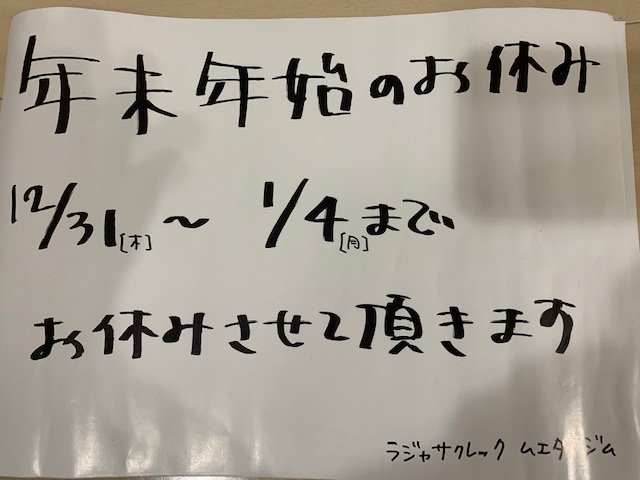 年末年始のお休み
12/31[木]～ 1/4[月]まで
お休みさせて頂きます
ラジャサクレック ムエタイジム